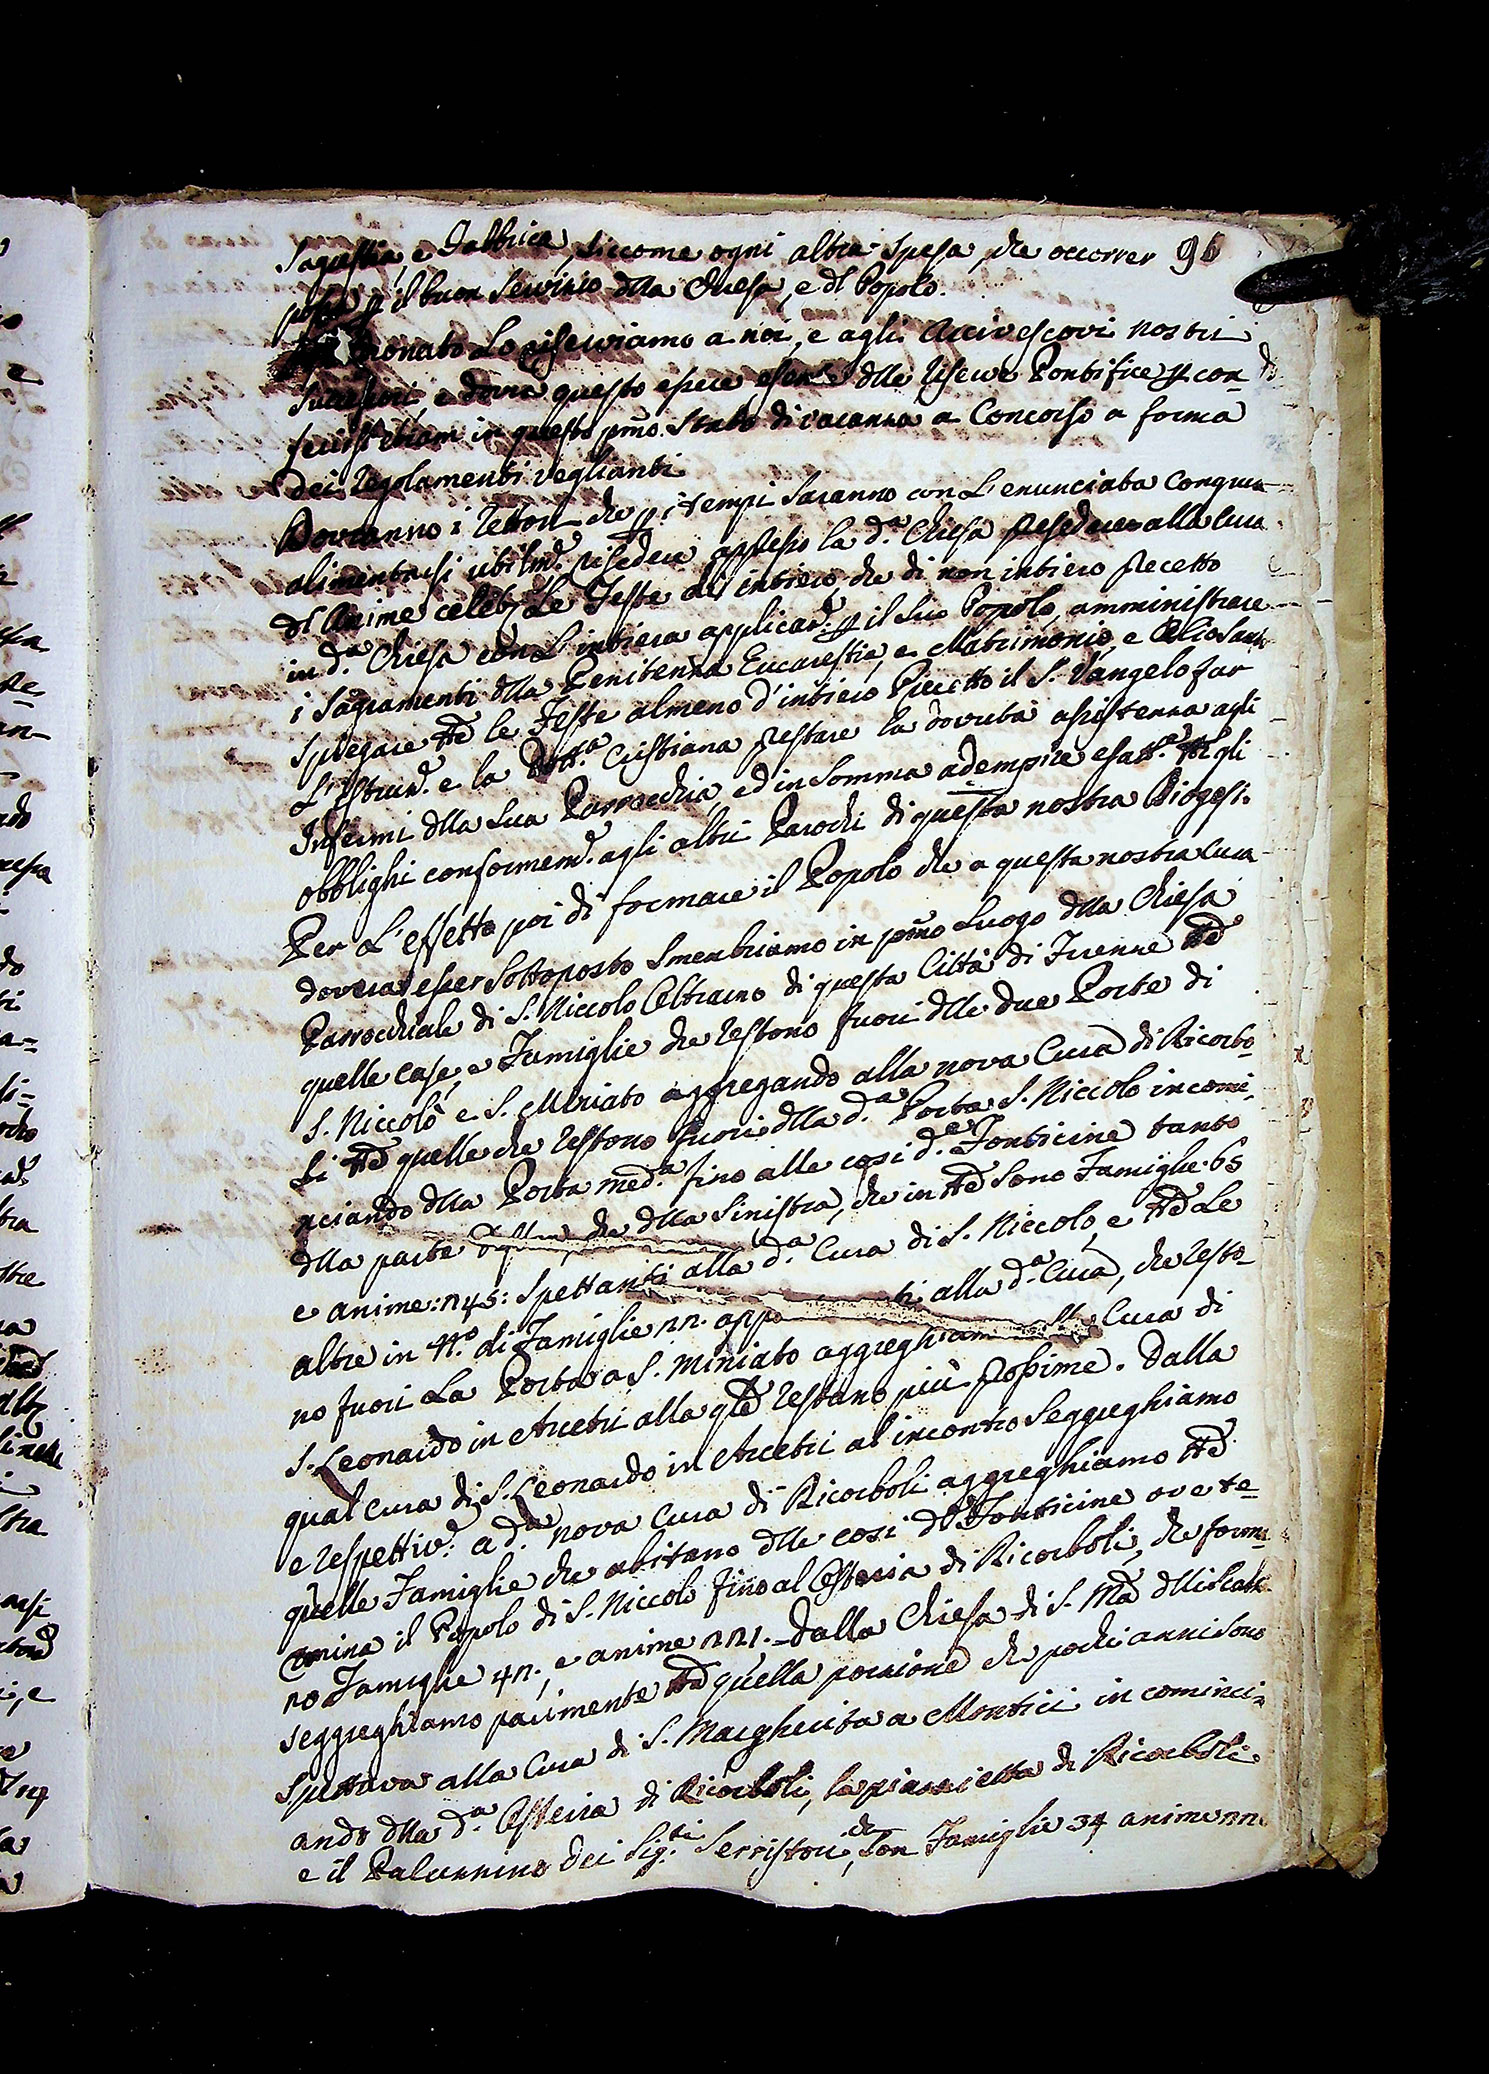 Sagrestia, e Fabbrica, siccome ogni altra spesa, che occorrer 96
possa p il buon Servizio dlla Chiesa, e dl Popolo.
Pronato Lo riserviamo a noi, e agli Arcivescovi nostri
Successori, e dovrà questo essere esente dlle riserve Pontificie p con-
ferirsi etiam in questo pmo Stato di vacanza a Concorso a forma
dei Regolamenti veglianti
Dovranno i Rettori che p i tempi saranno con L'enunciata Congrua
alimentarsi risedere appresso la d.a Chiesa presedere alla Cura
dl Anime celebr Le Feste di intiero, che di non intiero precetto
in d.a Chiesa con L'intiera applicaz.e p il suo Popolo, amministrare
i Sagramenti dlla Penitenza Eucarestia, e Matrimonio, e Olio Santo
spiegare tte le Feste almeno d'intiero Precetto il S. Vangelo far
L'Istruz.e e la Dott.a Cristiana prestare la dovuta assistenza agli
Infermi dlla Sua Parrocchia, ed in Somma adempire esatt.e tti gli
obblighi conformem.e agli altri Parochi di questa nostra Diogesi.
Per L'effetto poi di formare il Popolo che a questa nostra Cura
doverà esser Sottoposto Smenbriamo in pmo Luogo dlla Chiesa
Parrocchiale di S. Niccolo Oltrarno di questa Città di Firenze tte
quelle case, e Famiglie che restono fuori dlle due Porte di
S. Niccolò e S. Miniato aggregando alla nova Cura di Ricorbo-
li tte quelle che restono fuori dlla d.a Porta S. Niccolo incomi-
nciando dlla Porta med.a fino alle cosi d.e Fonticine tanto
dlla parte che dlla Sinistra, che in tte Sono Famiglie 65
e anime: 245: Spettanti alla d.a Cura di S. Niccolo, e tte Le
altre in n.o di Famiglie 22. app ti alla d.a Cura, che resto-
no fuori La Porta a S. Miniato aggreghiam lla Cura di
S. Leonardo in Arcetri alla qle restano più prossime. Dalla
qual Cura di S. Leonardo in Arcetri al incontro Seggreghiamo
e respettiv.e a d.a nova Cura di Ricorboli aggreghiamo tte
quelle Famiglie che abitano dlle cosi de Fonticine ove te-
rmina il Popolo di S. Niccolo fino al Osteria di Ricorboli, che forma-
no Famiglie 42., e anime 221. Dalla Chiesa di S. Ma dlli Scalz
seggreghiamo parimente tte quella porzione che pochi anni sono
Spettava alla Cura di S. Margherita a Montici in cominci-
ando dlla d.a Osteria di Ricorboli, la piazzetta di Ricorboli
e il Palazzino dei Sig.ri Serristori, che Son Famiglie 34 anime 22